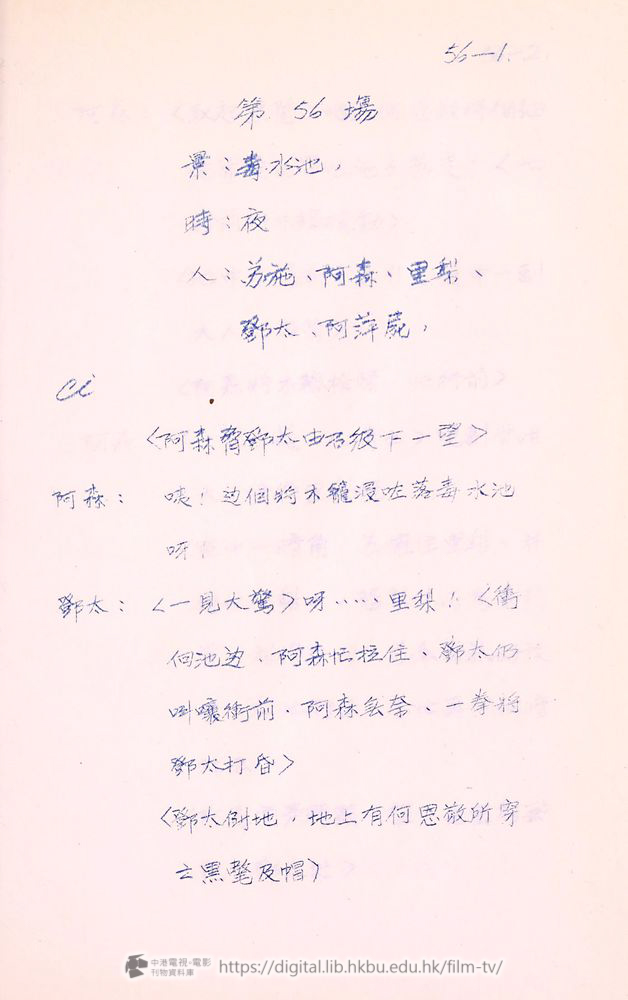 56—1.
第 56 場
景：毒水池，
時：夜
人：苏施、阿森、里梨、
鄧太、阿萍屍，
Ci
〈阿森齊鄧太由石級下一望〉
阿森： 咦！边個將木籠浸咗落毒水池
呀？
鄧太：〈一見大驚〉呀……里梨！〈衝
向池边、阿森忙拉住、鄧太仍
叫嚷衝前．阿森無奈、一拳將
鄧太打昏〉
〈鄧太倒地，地上有何思敬所穿
之黑氅及帽〉
中港電視·電影
刊物資料庫
https://digital.lib.hkbu.edu.hk/film-tv/